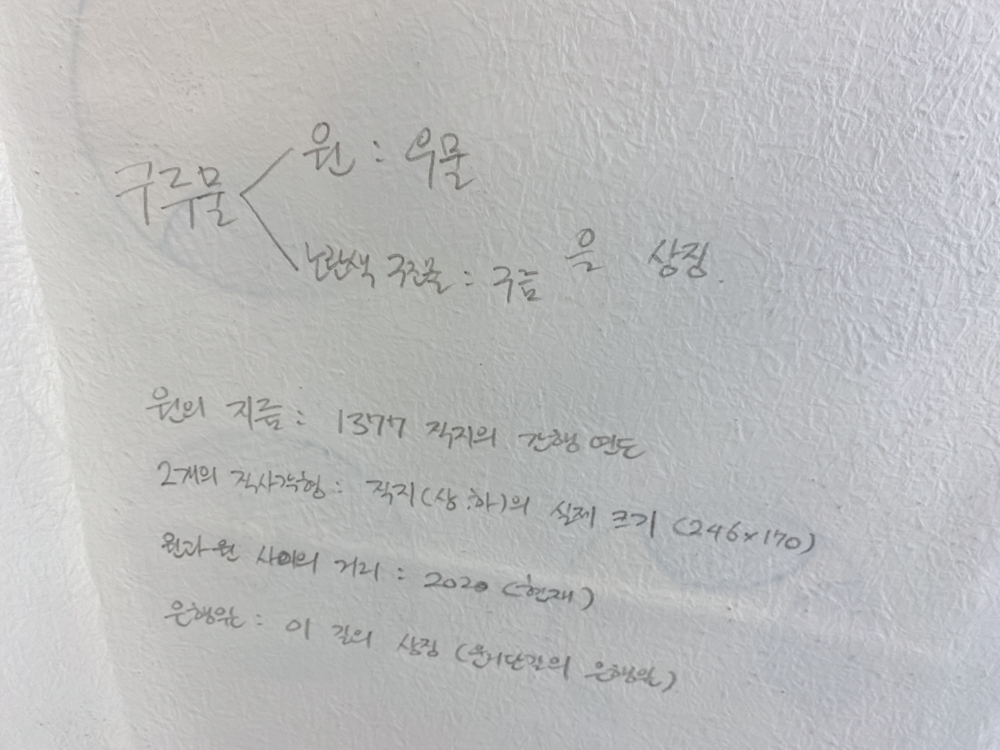 구루물
원 : 우물
노란색 구조물 : 구름 을 상징.
원의 지름 : 1377 직지의 간행 연도
2개의 직사각형 : 직지(상.하)의 실제 크기 (246×170)
원과 원 사이의 거리 : 2020 (현재)
은행잎 : 이 길의 상징 (운리단길의 은행잎)